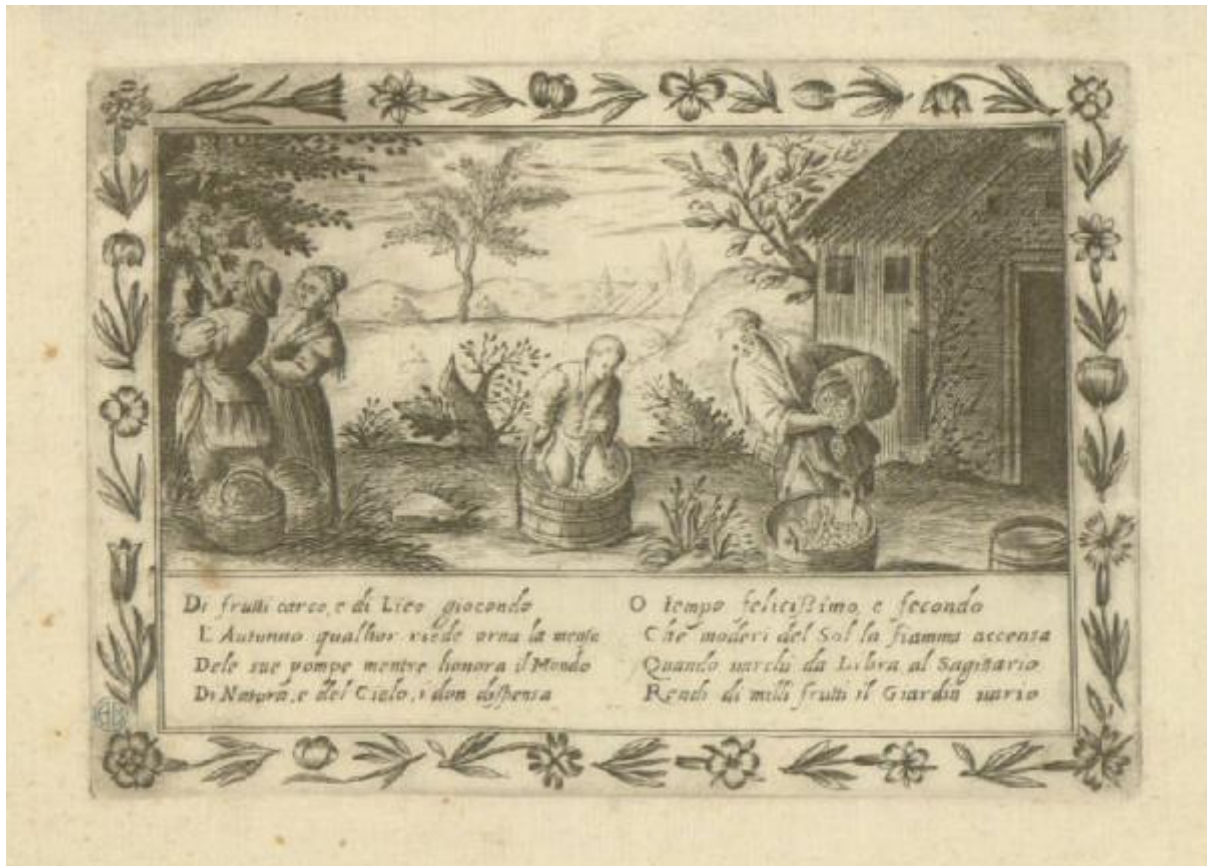 Di frutti carco, e di Lieo giocondo
L'Autunno qualhor riede orna la mensa
Dele sue pompe mentre honora il Mondo
Di Natura, e del Cielo, i don dispensa
O tempo felicissimo e fecondo
Che moderi del Sol la fiamma accensa
Quando varchi da Libra al Sagittario
Rendi di milli frutti il Giardin vario